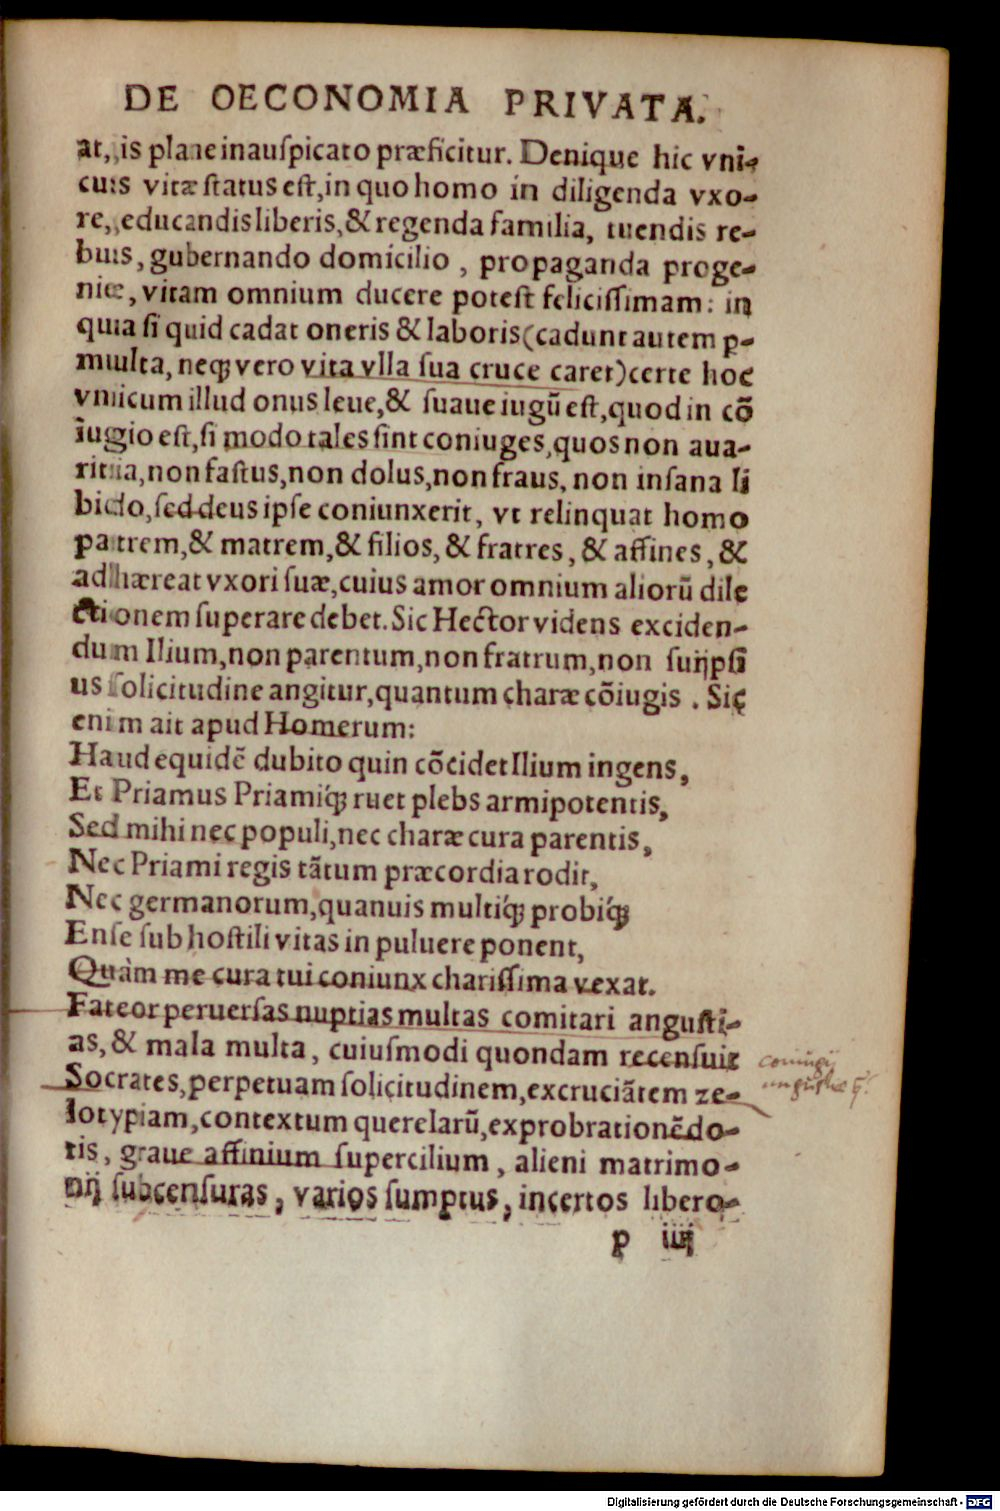 DE OECONOMIA PRIVATA.
at, is plane inauſpicato præficitur. Denique hic vni-
cus vitæ ſtatus eſt, in quo homo in diligenda vxo-
re, educandis liberis, & regenda familia, tuendis re-
bus, gubernando domicilio, propaganda proge-
nie, vitam omnium ducere poteſt feliciſſimam: in
qua ſi quid cadat oneris & laboris (cadunt autem p-
multa, neqꝫ vero vita vlla ſua cruce caret) certe hoc
vnicum illud onus leue, & ſuaue iugũ eſt, quod in cõ
iugio eſt, ſi modo tales ſint coniuges, quos non aua-
ritia, non faſtus, non dolus, non fraus, non inſana li
bido, ſed deus ipſe coniunxerit, vt relinquat homo
patrem, & matrem, & filios, & fratres, & affines, &
adhæreat vxori ſuæ, cuius amor omnium aliorũ dile
ctionem ſuperare debet. Sic Hector videns exciden-
dum Ilium, non parentum, non fratrum, non ſuijpſi
us ſolicitudine angitur, quantum charæ cõiugis. Sic
enim ait apud Homerum:
Haud equidẽ dubito quin cõcidet Ilium ingens,
Et Priamus Priamiq́ꝫ ruet plebs armipotentis,
Sed mihi nec populi, nec charæ cura parentis,
Nec Priami regis tãtum præcordia rodit,
Nec germanorum, quanuis multiq́ꝫ probiq́ꝫ
Enſe ſub hoſtili vitas in puluere ponent,
Quàm me cura tui coniunx chariſſima vexat.
Fateor peruerſas nuptias multas comitari anguſti-
as, & mala multa, cuiuſmodi quondam recenſuit
Socrates, perpetuam ſolicitudinem, excruciãtem ze-
lotypiam, contextum querelarũ, exprobrationẽ do-
tis, graue affinium ſupercilium, alieni matrimo-
nij ſubcenſuras, varios ſumptus, incertos libero-
p iiij
coniugij
anguſtiæ
Digitalisierung gefördert durch die Deutsche Forschungsgemeinschaft - DFG